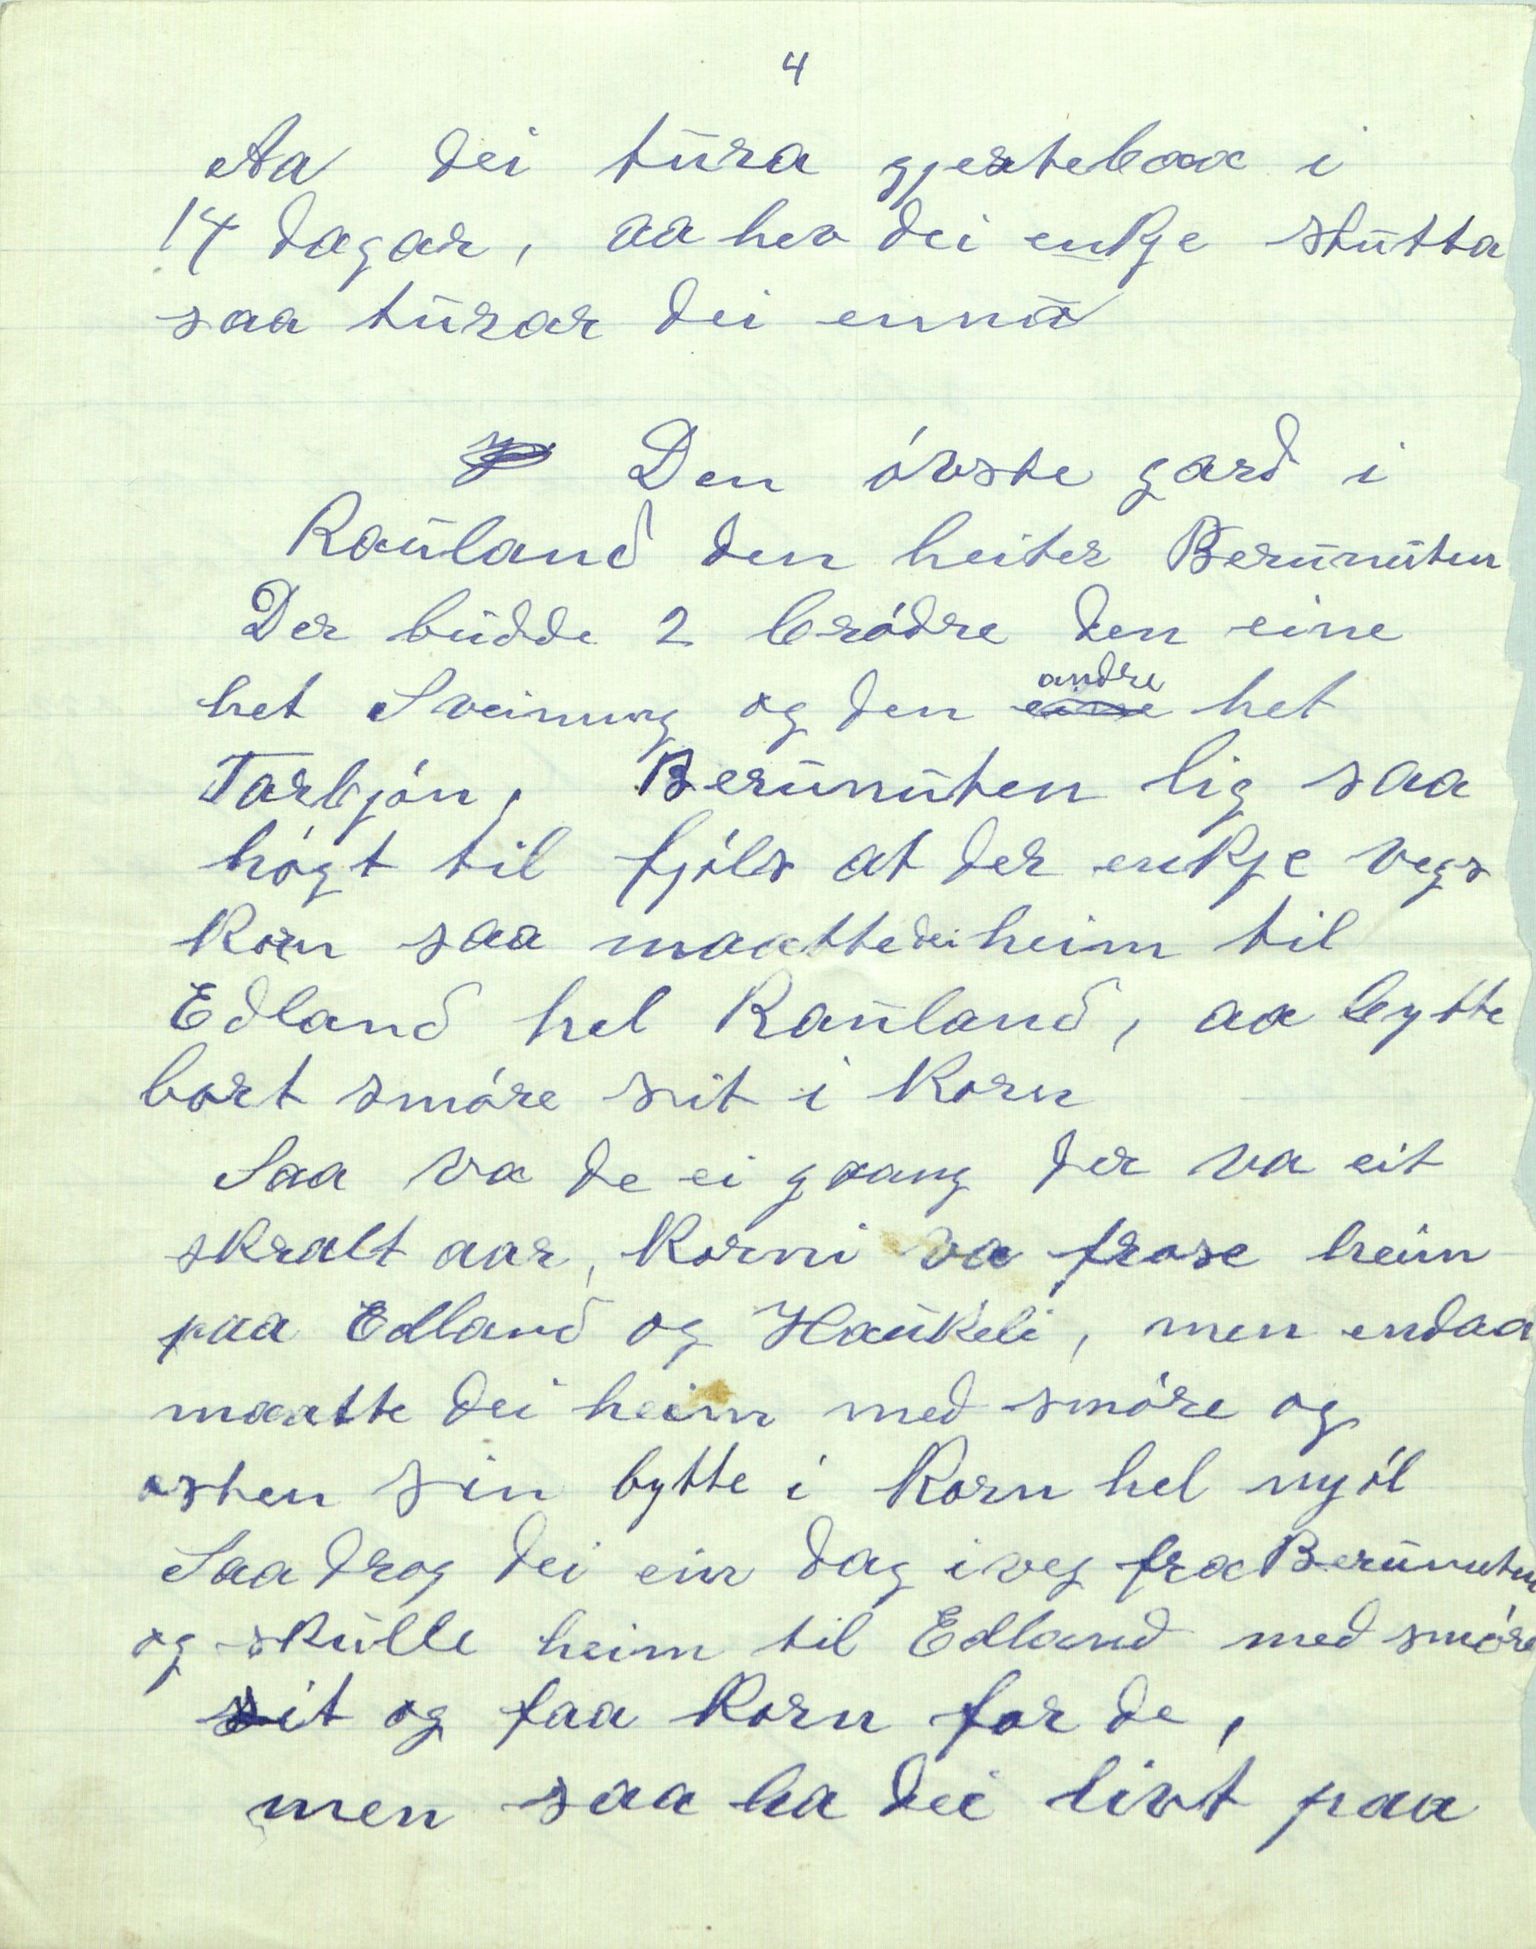 4
Aa dei tura gjestebaa i
14 dagar, aa hev dei enkje stutta
saa turar dei enno
Den óvste gard i
Rauland den heiter Berunuten
Der budde 2 bródre den eine
het Sveinung og den eine andre het
Tarbjón, Berunuten lig saa
hógt til fjóls at der enkje vegs
korn saa maatte dei heim til
Edland hel Rauland, aa bytte
bort smóre sit i korn
Saa va de ei gaang der va eit
skralt aar, korni va frose heim
paa Edland og Haukeli, men endaa
maatte dei heim med smóre og
osten sin bytte i korn hel mjól
Saa drog dei ein dag i veg fra Berunuten
og skulle heim til Edland med smóre
sit og faa korn for de,
men saa ha dei livt paa